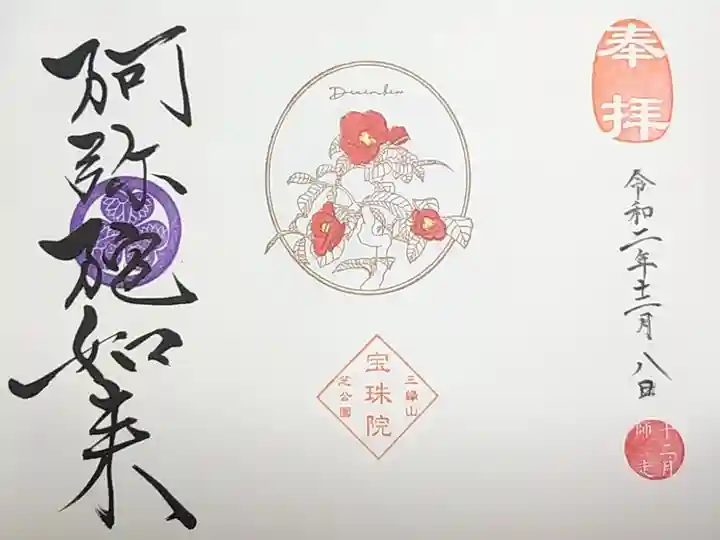 奉拝
令和二年十二月八日
十二月
師走
December
三縁山
宝珠院
芝公園
阿弥陀如来